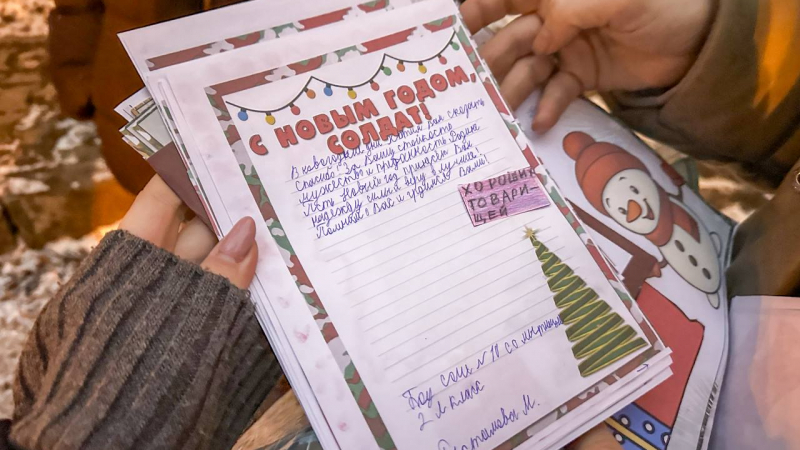 С НОВЫМ ГОДОМ,
СОЛДАТ!
В новогодние дни хотим Вам сказать
спасибо за Вашу стойкость
мужество и преданность Родине
Пусть Новый год придаст Вам
надежду силы и веру в лучшее,
Помним о Вас и гордимся Вами!
ХОРОШИХ
ТОВАРИ-
ЩЕЙ
№ 10
2 л класс
М.